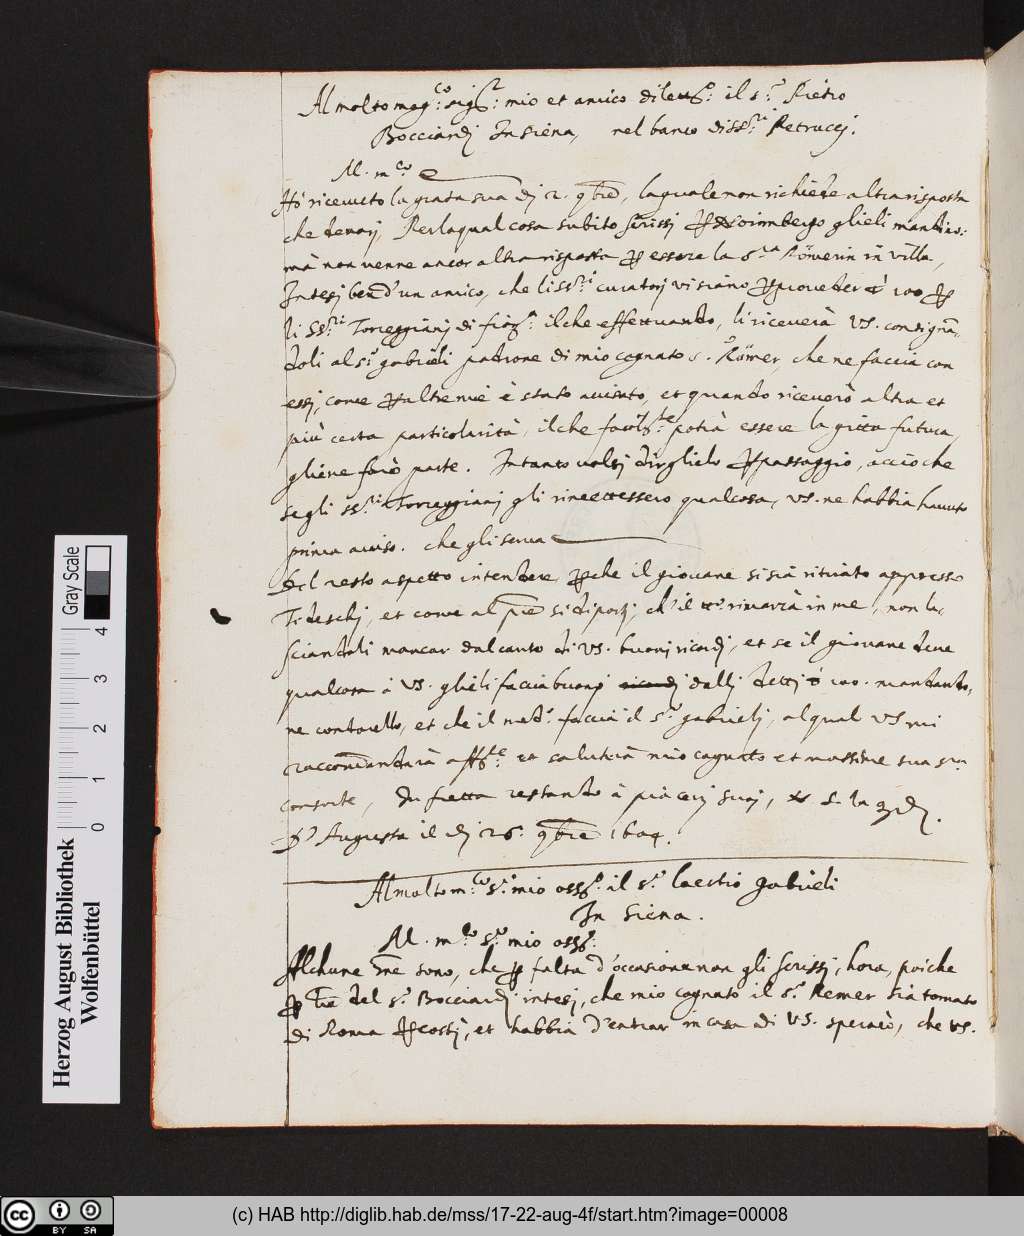 Al molto mag:co sig:r mio et amico dilett:o il s:r Pietro
Bocciardj In Siena, nel banco di ss:ri Petruccj.
M. m:co
Hò riceuuto la grata sua dj 2. 9bre, la quale non richiede altra risposta
che denarj, Per la qual cosa subito scrissj glieli mandino:
mà non venne ancor altra risposta per essere la s:ra Römerin in villa,
Intesj ben d'un amico, che li ss:ri curatorj visiano per proueder 100 per
li ss:ri Torreggianj di il che effettuando, li riceuerà VS. consignan-
doli al s:r gabrieli padrone di mio cognato s.r Römer, che ne faccia con
essj, come per altre mie è stato auisato, et quando riceuerò altra et
più certa particolarità, il che potrà essere la gitta futura,
gliene farò parte. Intanto volsj dirglielo per passaggio, acciò che
se gli ss:ri Torreggianj gli rimettessero qualcosa, VS. ne habbia hauuto
prima auiso. che gli serua
Del resto aspetto intendere, perche il giouane si sia ritirato appresso
Tedeschj, et come al si diportj, ch'il rimarrà in me, non la-
sciandoli mancar dal canto di VS. buonj ricordj, et se il giouane deue
qualcosa à VS. glieli faccia buonj ricordj dallj dettj 100. mandando-
ne contarello, et che il med:o faccia il s:r gabrielj, al qual VS mi
raccomandarà aff:te et salutarà mio cognatto et massime sua s:ra
consorte, Da fretta restando à piacerj suoj,
D' Augusta il dj 26. 9bre 1604.
Al molto m:co s:r mio oss:o il s:r laertio gabrieli
In Siena.
M. m:co s:r mio oss:o
Alchune sono, che per falta d'occasione non gli scrissj, hora, poiche
per del s:r Bocciardj intesj, che mio cognato il s:r Remer sia tornato
di Roma per costj, et habbia d'entrar in casa di VS. sperarò, che VS.
Gray Scale
0 1 2 3 4
Herzog August Bibliothek
Wolfenbüttel
cc BY SA
(c) HAB http://diglib.hab.de/mss/17-22-aug-4f/start.htm?image=00008